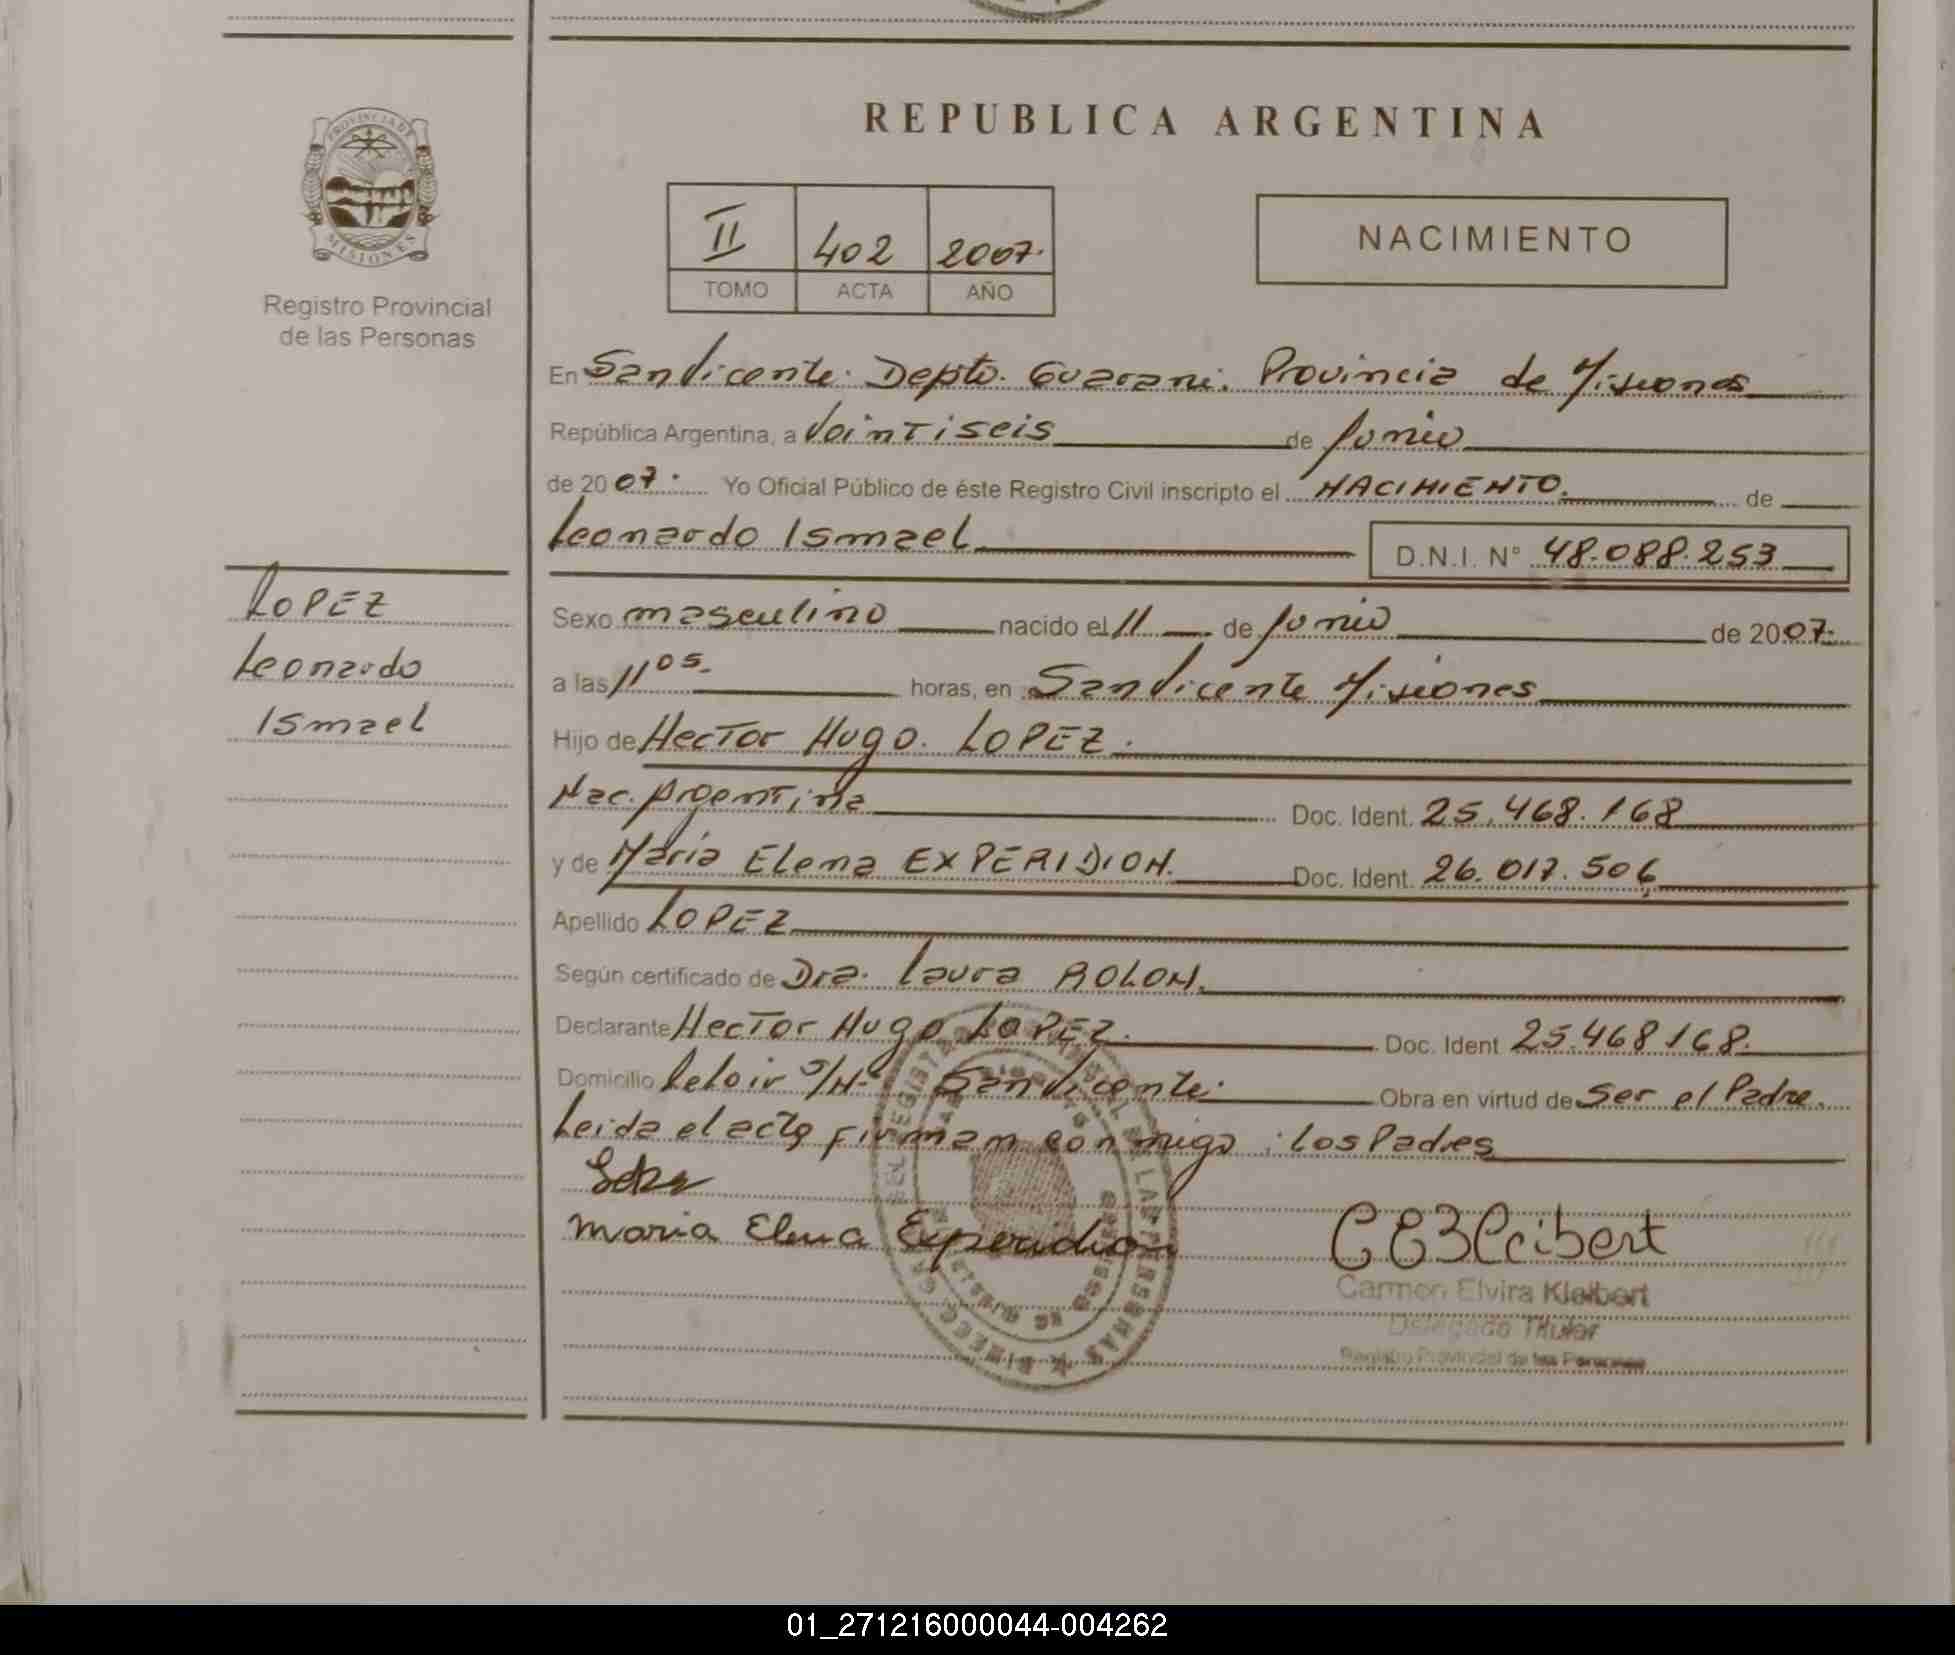 REPUBLICA ARGENTINA
PROVINCIA DE
MISIONES
Registro Provincial
de las Personas
II 402 2007.
TOMO ACTA AÑO
NACIMIENTO
En San Vicente. Depto. Guarani. Provincia de Misiones
República Argentina, a Veintiseis de Junio
de 2007. Yo Oficial Público de éste Registro Civil inscripto el NACIMIENTO. de
Leonardo Ismael D.N.I. N° 48.088.253
LOPEZ
Leonardo
Ismael
Sexo masculino nacido el 11 de Junio de 2007.
a las 11 05. horas, en San Vicente Misiones
Hijo de Hector Hugo. LOPEZ.
Nac. Argentina Doc. Ident. 25.468.168
y de Maria Elena EXPERIDION. Doc. Ident. 26.017.506
Apellido LOPEZ
Según certificado de Dra. Laura ROLON.
Declarante Hector Hugo LOPEZ. Doc. Ident 25.468168.
Domicilio Leloir S/N- San Vicente. Obra en virtud de Ser el Padre.
Leida el acta firman conmigo: los Padres
Maria Elena Experidion
Carmen Elvira Kleibert
Delegado Titular
Registro Provincial de las Personas
01_271216000044-004262